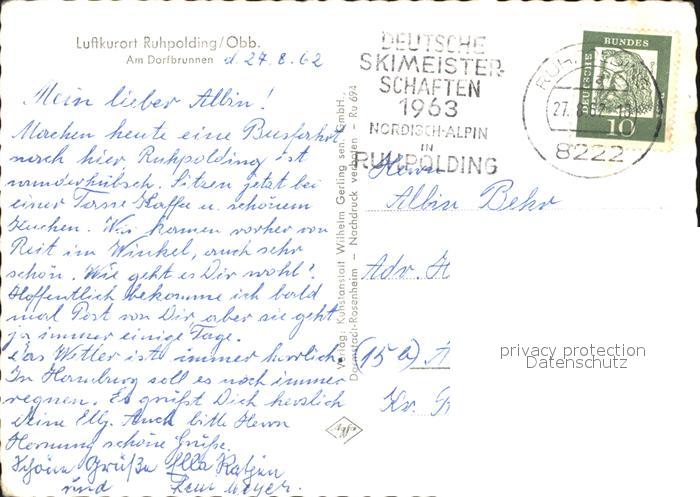 Luftkurort Ruhpolding/Obb.
Am Dorfbrunnen
d. 27.8.62
Mein lieber Albin!
Machen heute eine Busfahrt
nach hier Ruhpolding ist
wunderhübsch. Sitzen jetzt bei
einer Tasse Kaffee u. schönem
Kuchen. Wir kamen vorher von
Reit im Winkel, auch sehr
schön. Wie geht es Dir wohl?
Hoffentlich bekomme ich bald
mal Post von Dir, aber sie geht
ja immer einige Tage.
Das Wetter ist immer herrlich.
In Hamburg soll es noch immer
regnen. Es grüßt Dich herzlich
Deine Elly. Auch bitte Herrn
Hornung schöne Grüße.
Schöne Grüße Ella Katjen
und Meyer.
Verlag: Kunstanstalt Wilhelm Gerling sen. GmbH.,
Darmstadt-Rosenheim – Nachdruck verboten – Ru 694
Agfa
DEUTSCHE
SKIMEISTER-
SCHAFTEN
1963
NORDISCH-ALPIN
IN
RUHPOLDING
27.8.62
8222
DEUTSCHE BUNDES
10
Herrn
Albin Behr
Adv. H
(15 a) A
Kr.
privacy protection
Datenschutz